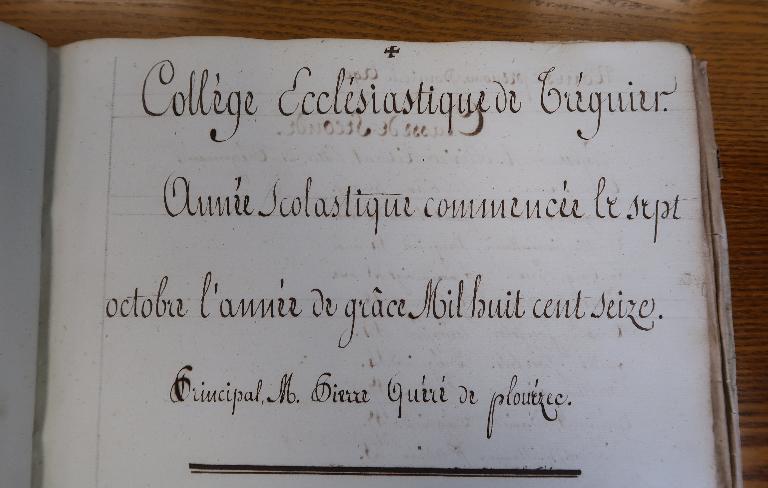 Collège Ecclésiastique de Tréguier.
Année Scolastique commencée le sept
octobre l'année de grâce Mil huit cent seize.
Principal, M. Pierre Quéré de plouézec.